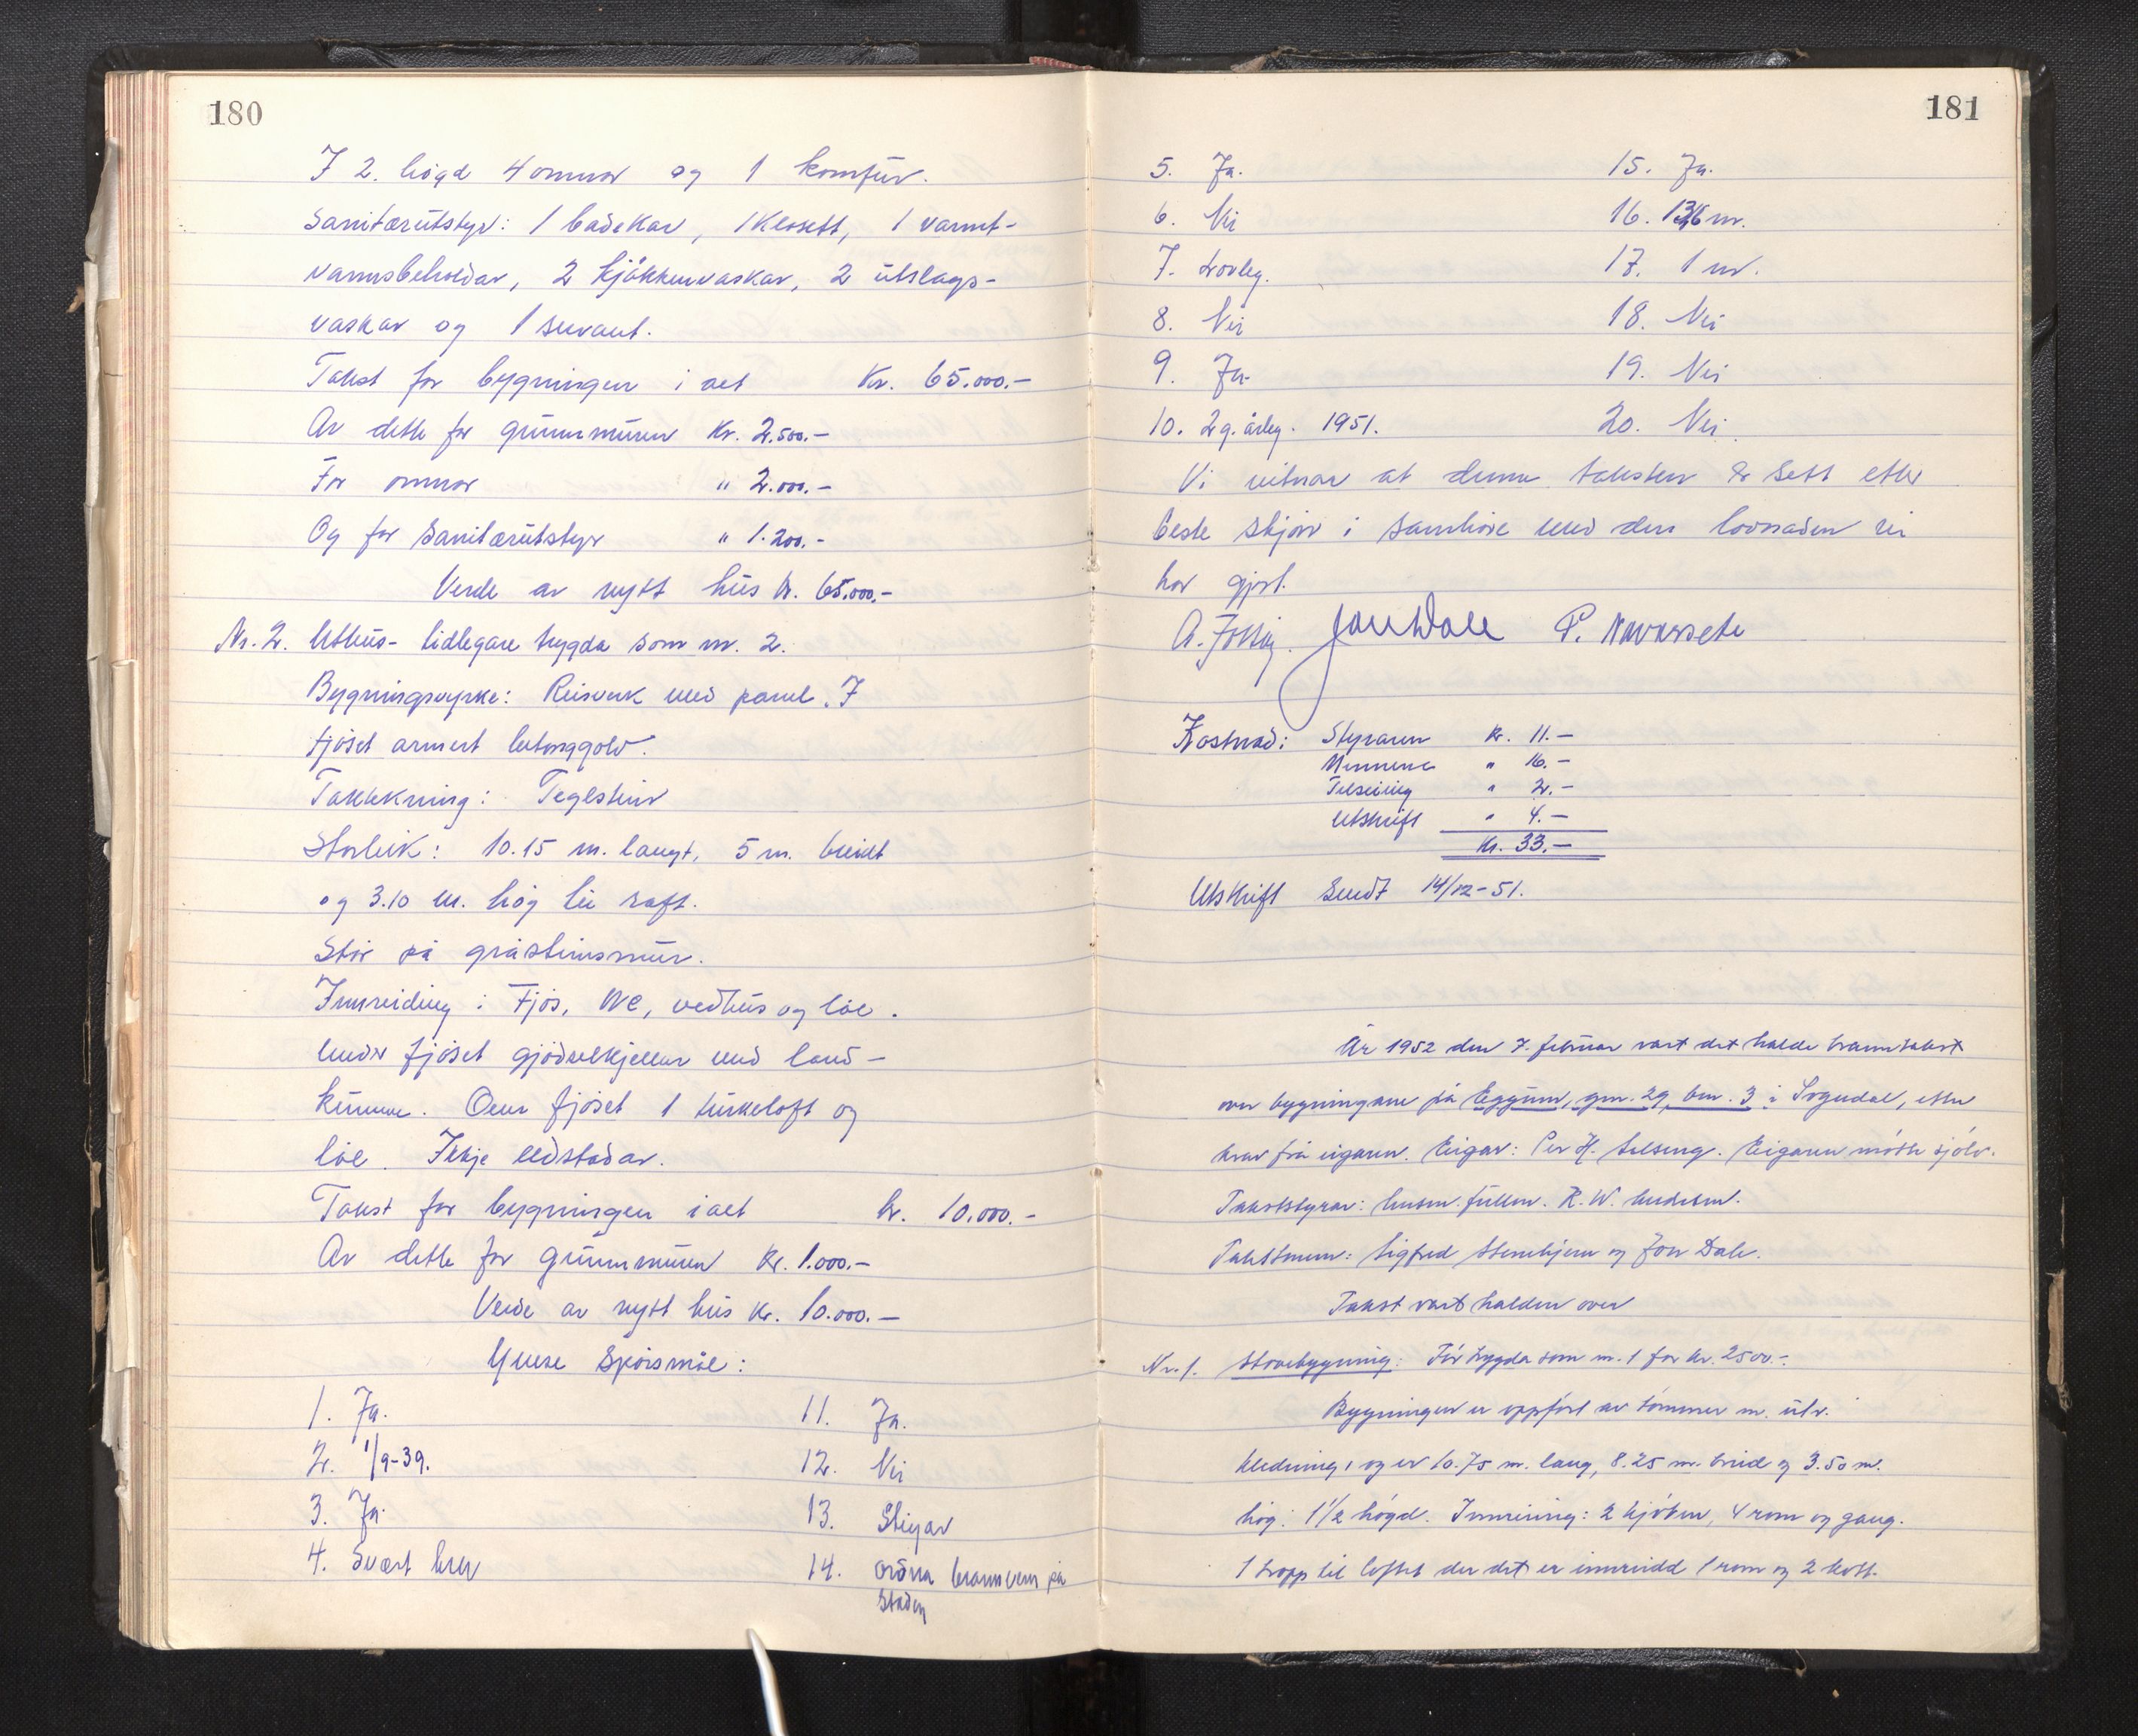 180
I 2. høgd 4 omnar og 1 komfûr.
Sanitærûtstyr: 1 badekar, 1 klosett, 1 varmt-
vannsbeholdar, 2 kjøkkenvaskar, 2 ûtslags-
vaskar og 1 servant.
Takst for bygningen i alt Kr. 65.000.-
Av dette for grûnnmûren Kr. 2.500.-
For omnar " 2.000.-
Og for sanitærûtstyr " 1.200.-
Verde av nytt hûs kr. 65.000.-
Nr. 2. Uthûs- tidlegare trygda som nr. 2.
Bygningsvyrke: Reisverk med panel. I
fjøset armert betonggolv.
Takteking: Teglstein
Storleik: 10.15 m. langt, 5 m. breidt
og 3.10 m. høg til raft.
Står på gråsteinsmûr.
Innreiding: Fjøs, WC, vedhûs og løe.
Under fjøset gjødselkjellar med land-
kûmme. Over fjøset 1 tûrkeloft og
løe. Ikkje eldstadar.
Takst for bygningen i alt kr. 10.000.-
Av dette for grûnnmûren kr. 1.000.-
Verde av nytt hûs kr. 10.000.-
Ymse spørsmål:
1. Ja. 11. Ja.
2. 1/9-39. 12. Nei
3. Ja. 13. Stigar
4. Svært brev 14. Ordna brannvern på
staden
181
5. Ja. 15. Ja.
6. Nei 16. m.
7. Lovleg. 17. 1 m.
8. Nei 18. Nei
9. Ja. 19. Nei
10. 2 g. årleg. 1951. 20. Nei.
Vi vitnar at denne taksten er sett etter
beste skjøn i samhøve med den lovnaden vi
har gjort.
Jon Dale P. Navarsete
Kostnad: Styraren kr. 11.-
Mennene " 16.-
Tilseiing " 2.-
Utskrift " 4.-
Kr. 33.-
Utskrift sendt 14/12-51.
År 1952 den 7. febrûar vart det halde branntakst
over bygningane på Eggûm, gnr. 29, bnr. 3 i Sogndal, etter
krav frå eigaren. Eigar: Per H. Selseng. Eigaren møtte sjølv.
Takststyrar: lensm. fûllm. R. W.
Takstmenn: Sigfred Stenehjem og Jon Dale.
Takst vart halden over
Nr. 1. Stovebygning: Før trygda som nr. 1 for kr. 2500.-.
Bygningen er oppført av tømmer m. ûtv.
kledning, og er 10.75 m. lang, 8.25 m. breid og 3.50 m.
høg. 1 1/2 høgd. Innreiing: 2 kjøken, 4 rom og gang.
1 tropp til loftet der det er innreidd 1 rom og 2 kott.